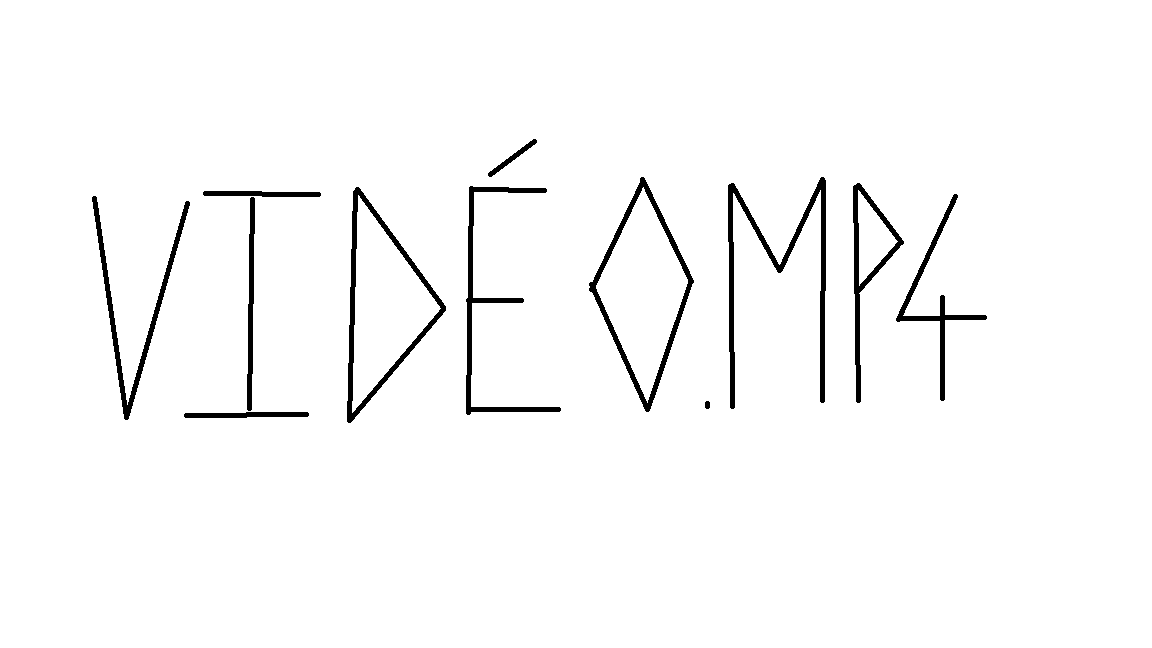 VIDÉO.MP4